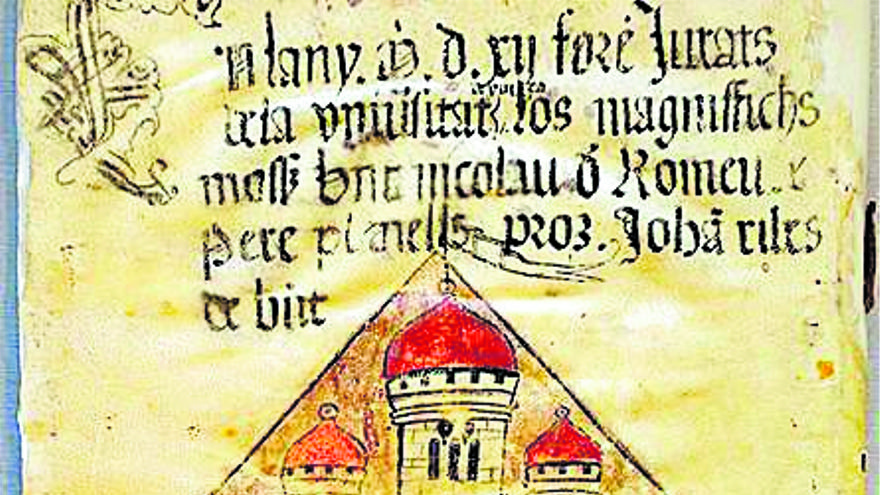 En lany. M. d. xij foré Jurats
dela vniūsitat los magniffichs
moss bnt nicolau ó Romeu. e
Pere planells proz. Johā riles
de bnt